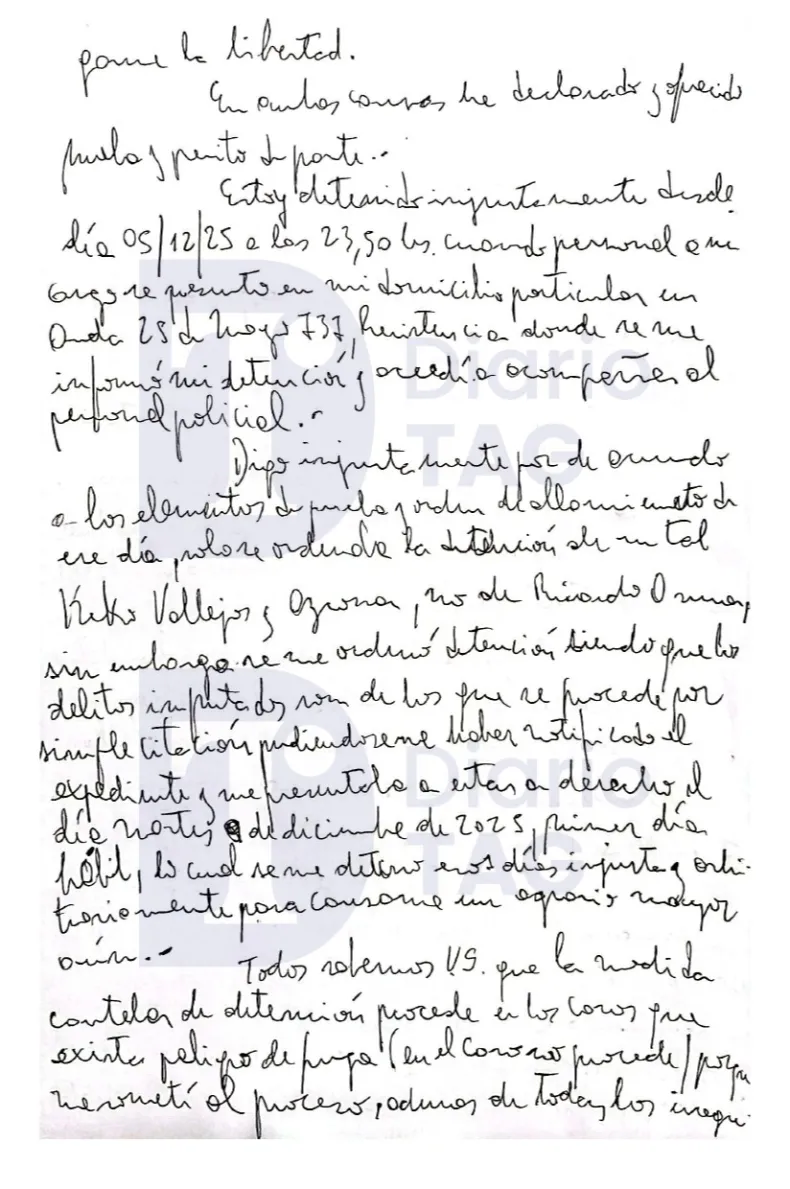 la libertad.
En ambas causas he declarado y ofrecido
prueba y perito de parte.-
Estoy detenido injustamente desde
día 05/12/25 a las 23,50 hs. cuando personal a su
cargo se presentó en mi domicilio particular en
25 de Mayo 737, Resistencia donde se me
informó mi detención y accedí a acompañar al
personal policial.-
Digo injustamente por de acuerdo
a los elementos de prueba y orden de allanamiento de
ese día, solo se ordenaba la detención de un tal
Kiko Vallejos y, no de Ricardo
sin embargo se me ordenó detención siendo que los
delitos imputados son de los que se procede por
simple citación pudiendoseme haber notificado el
expediente y me presentaba a estar a derecho el
día martes de diciembre de 2025, primer día
hábil, lo cual se me detuvo esos días injusta y arbi-
trariamente para causarme un agravio mayor
aún.-
Todos sabemos VS. que la medida
cautelar de detención procede en los casos que
exista peligro de fuga (en el caso no procede) porque
me sometí al proceso, ademas de todas los
Diario
TAG
Diario
TAG